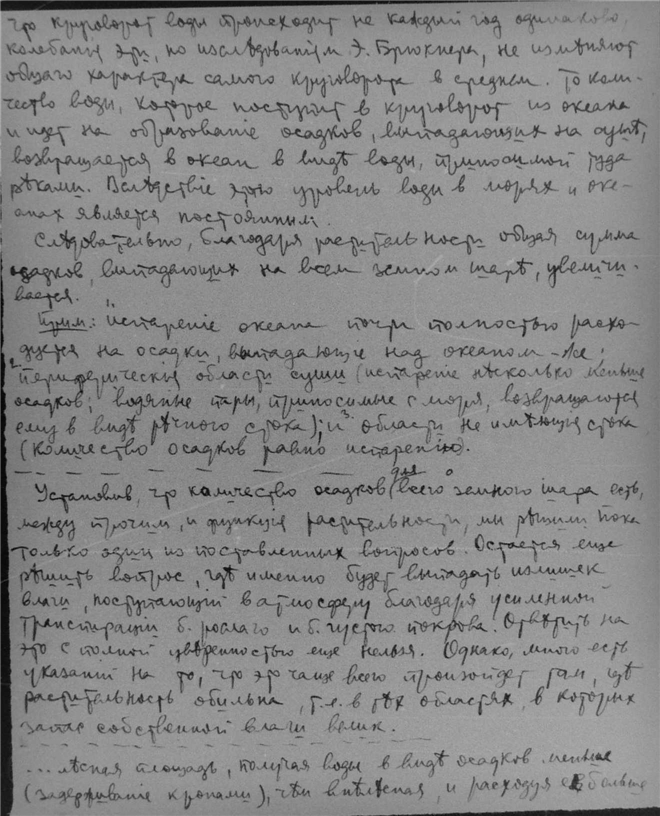 что круговорот воды происходит не каждый год одинаково,
колебанія эти, по изслѣдованіям Э. Брюкнера, не измѣняют
общаго характера самого круговорота в среднем. То коли-
чество воды, которое поступит в круговорот из океана
и идет на образованіе осадков, выпадающих на сушѣ,
возвращается в океан в видѣ воды, приносимой туда
рѣками. Вслѣдствіе этого уровень воды в морях и оке-
анах является постоянным.
Слѣдовательно, благодаря растительности общая сумма
осадков, выпадающих на всем земном шарѣ, увеличи-
вается.
Прим: испареніе океана почти полностью расхо-
дуется на осадки, выпадающіе над океаном-же;
2 периферическія области суши (испареніе нѣсколько меньше
осадков; водяные пары, приносимые с моря, возвращаются
ему в видѣ рѣчного стока); и 3 области не имѣющія стока
(количество осадков равно испаренію).
Установив, что количество осадков для всего земного шара есть,
между прочим, и функція растительности, мы рѣшили пока
только один из поставленных вопросов. Остается еще
рѣшить вопрос, гдѣ именно будет выпадать излишек
влаги, поступающій в атмосферу благодаря усиленной
транспираціи б. рослаго и б. густого покрова. Отвѣтить на
это с полной увѣренностью еще нельзя. Однако, много есть
указаній на то, что это чаще всего произойдет там, гдѣ
растительность обильна, т.е. в тѣх областях, в которых
запас собственной влаги велик.
... лѣсная площадь, получая воды в видѣ осадков меньше
(задерживаніе кронами), чѣм внѣлѣсная, и расходуя ея больше